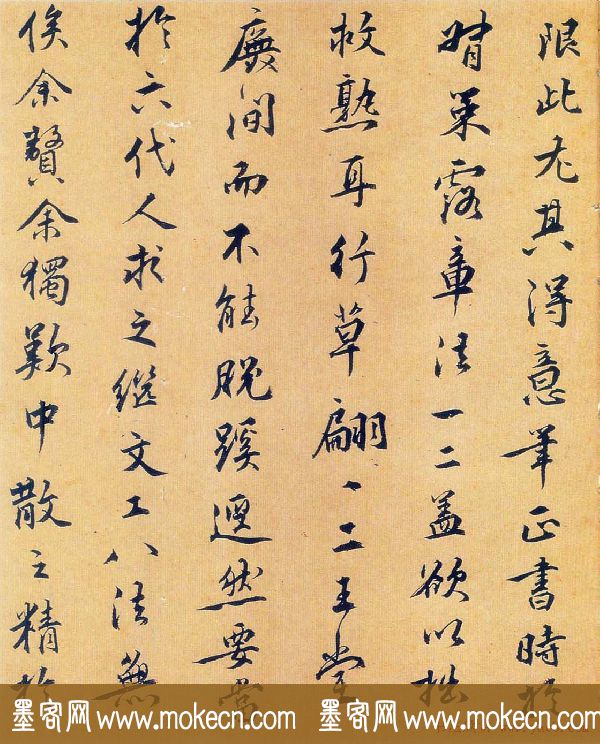 限此尤其得意筆正書時於
策露章法一二蓋欲以拙
救熟耳行草翩〻二王堂
廡間而不能脫蹊逕然要當
於六代人求之繼文工八法無
俟余贊余獨歎中散之精於
墨客网 www.mokecn.com 墨客网 www.mokecn.com